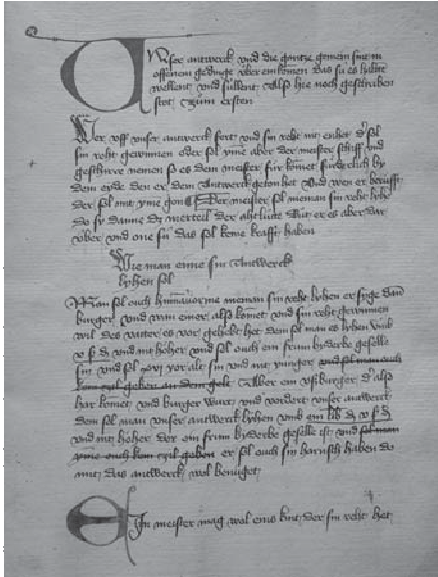 Unser antwerck und die gantze gemein sint in
offenem gedinge uber ein komen das sü es halten
wellent und süllent Alß hie noch geschriben
stot zum ersten
Wer uff unser antwerck fert und sin reht nit enhet der sol
sin reht gewinnen oder sol yme aber der meister sin
geschirre nemen so es dem meister für komet fürderlich by
dem eyde den er dem Antwerck geton het Und wen er berüfft
der sol mit yme gon Der meister sol nieman sin reht lyhen
do sy danne dz merteil der ahtlüte Tut er es aber dar
uber und one sü das sol keine krafft haben
Wie man eime sin Antwerck
lyhen sol
Man sol ouch hinnanvor me nieman sin reht lyhen er syge dann
burger und wan einre also komet und sin reht gewinnen
wil des vatter es vor gehebt het dem sol man es lyhen umb
und nit höher und sol ouch ein frum byderbe geselle
sin und sol xvi jor alt sin und nit junger und sol man ouch
kein zil geben an dem gelt Aber ein ußburger der also
har komet und burger wurt und vordert unser antwerck
dem sol man unser antwerck lyhen umb ein
und nit höher der ein frum byderbe geselle ist und sol man
yme ouch kein zil geben er sol ouch sin harnisch haben do
mit das antwerck wol benüget
Ein meister mag wol eins kint der sin reht het